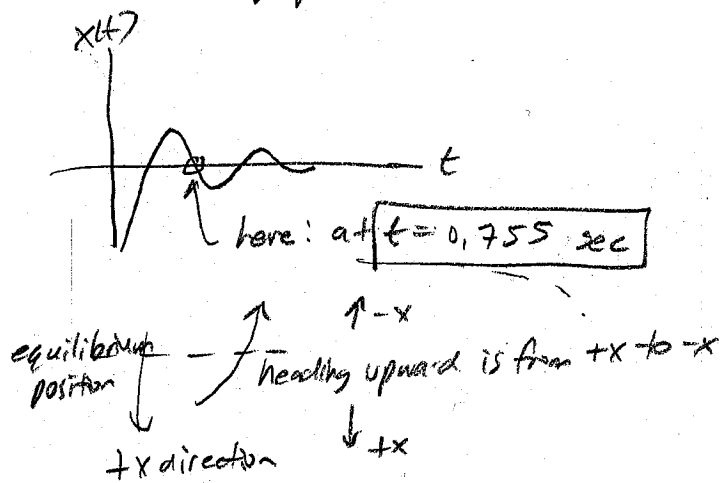 x(t)
t
here: at t = 0,755 sec
↑ -x
equilibrium position
heading upward is from +x to -x
↓ +x
+x direction